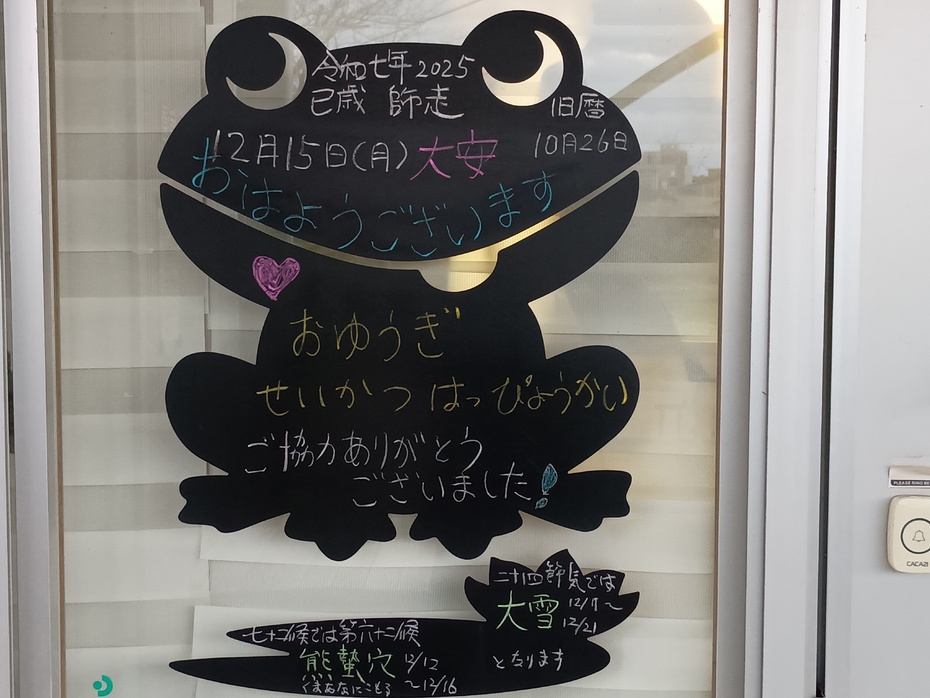 令和七年2025
巳歳 師走
旧暦
10月26日
12月15日(月)大安
おはようございます
おゆうぎ
せいかつ はっぴょうかい
ご協力ありがとう
ございました!
二十四節気では
大雪 12/7～
12/21
となります
七十二候では第六十二候
熊蟄穴 12/12
くまあなにこもる ～12/16
PLEASE RING
CACAZI